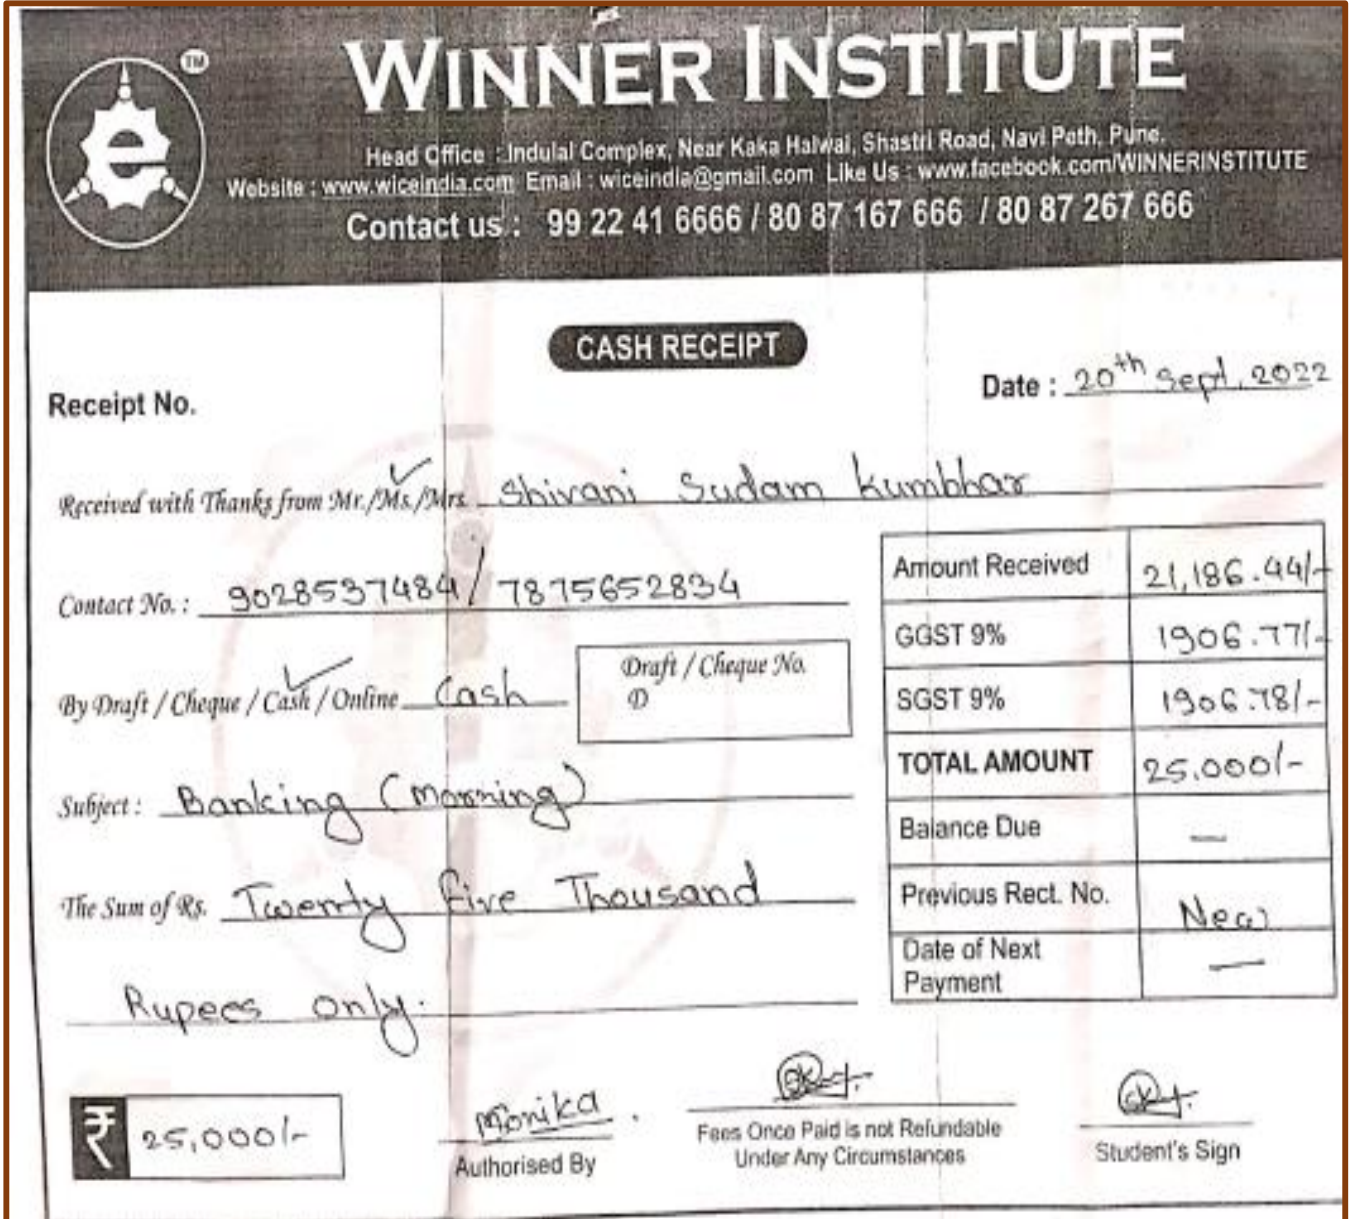 TM
e
WINNER INSTITUTE
Head Office : Indulal Complex, Near Kaka Halwai, Shastri Road, Navi Peth, Pune.
Website : www.wiceindia.com Email : wiceindia@gmail.com Like Us : www.facebook.com/WINNERINSTITUTE
Contact us : 99 22 41 6666 / 80 87 167 666 / 80 87 267 666
CASH RECEIPT
Receipt No.
Date : 20th Sept, 2022
Received with Thanks from Mr./Ms./Mrs. Shivani Sudam Kumbhar
Contact No. : 9028537484 / 7875652834
By Draft / Cheque / Cash / Online Cash
Draft / Cheque No.
D
Subject : Banking (Morning)
The Sum of Rs. Twenty Five Thousand
Rupees only.
Amount Received 21,186.44/-
GGST 9% 1906.77/-
SGST 9% 1906.78/-
TOTAL AMOUNT 25,000/-
Balance Due —
Previous Rect. No. New
Date of Next Payment —
₹ 25,000/-
Monika.
Authorised By
Fees Once Paid is not Refundable
Under Any Circumstances
Student's Sign